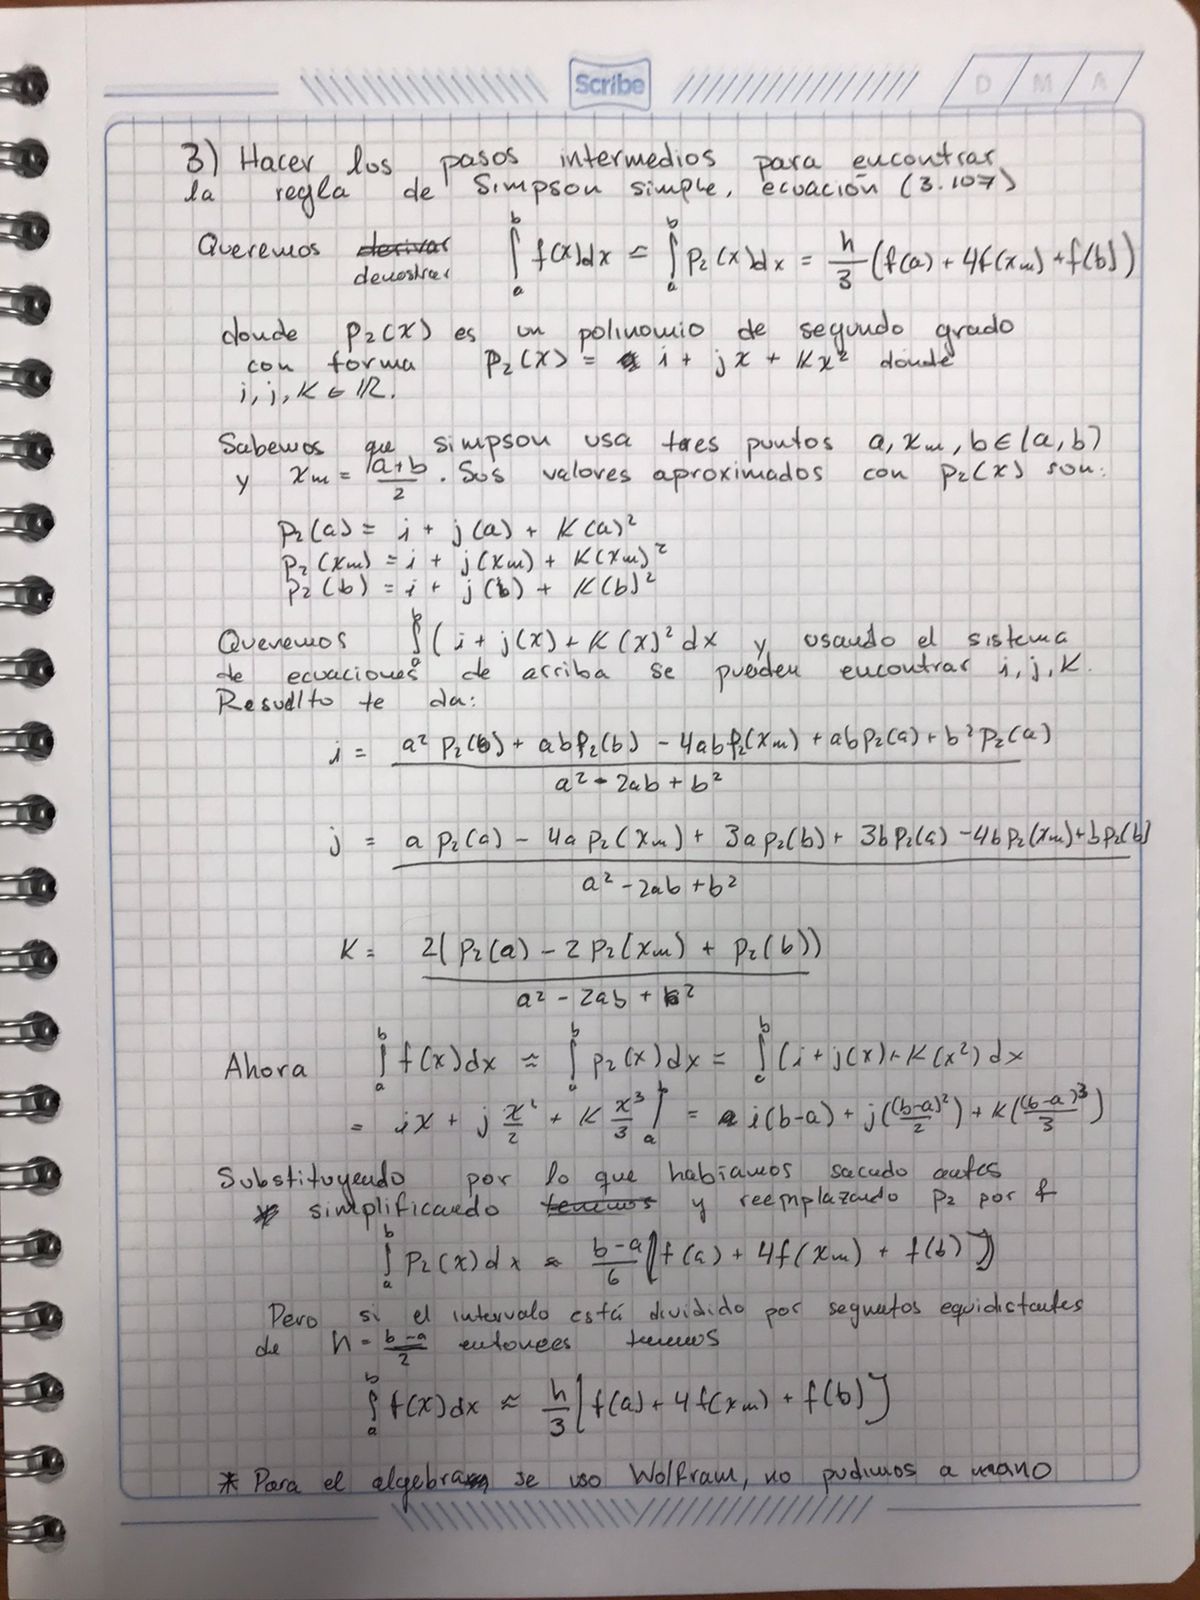 Scribe
D M A
3) Hacer los pasos intermedios para encontrar
la regla de Simpson simple, ecuación (3.107)
Queremos derivar demostrar ∫_a^b f(x)dx ≈ ∫_a^b P₂(x)dx = h/3 (f(a) + 4f(xm) + f(b))
donde P₂(x) es un polinomio de segundo grado
con forma P₂(x) = i + jx + Kx² donde
i, j, K ∈ ℝ.
Sabemos que simpson usa tres puntos a, xm, b ∈ (a, b)
y xm = (a+b)/2. Sus valores aproximados con P₂(x) son:
P₂(a) = i + j(a) + K(a)²
P₂(xm) = i + j(xm) + K(xm)²
P₂(b) = i + j(b) + K(b)²
Queremos ∫_a^b (i + j(x) + K(x)² dx y usando el sistema
de ecuaciones de arriba se pueden encontrar i, j, K.
Resuelto te da:
i = (a² P₂(b) + abP₂(b) - 4abP₂(xm) + abP₂(a) + b²P₂(a)) / (a² - 2ab + b²)
j = (a P₂(a) - 4a P₂(xm) + 3a P₂(b) + 3b P₂(a) - 4b P₂(xm) + b P₂(b)) / (a² - 2ab + b²)
K = 2(P₂(a) - 2 P₂(xm) + P₂(b)) / (a² - 2ab + b²)
Ahora ∫_a^b f(x)dx ≈ ∫_a^b P₂(x)dx = ∫_a^b (i + j(x) + K(x²) dx
= ix + j x²/2 + K x³/3 |_a^b = i(b-a) + j((b-a)²/2) + K((b-a)³/3)
Substituyendo por lo que habiamos sacado antes
* simplificando tenemos y reemplazando P₂ por f
∫_a^b P₂(x)dx ≈ (b-a)/6 [f(a) + 4f(xm) + f(b)]
Pero si el intervalo está dividido por segmetos equidistantes
de h = (b-a)/2 entonces tenemos
∫_a^b f(x)dx ≈ h/3 [f(a) + 4f(xm) + f(b)]
* Para el algebra se uso Wolfram, no pudimos a mano